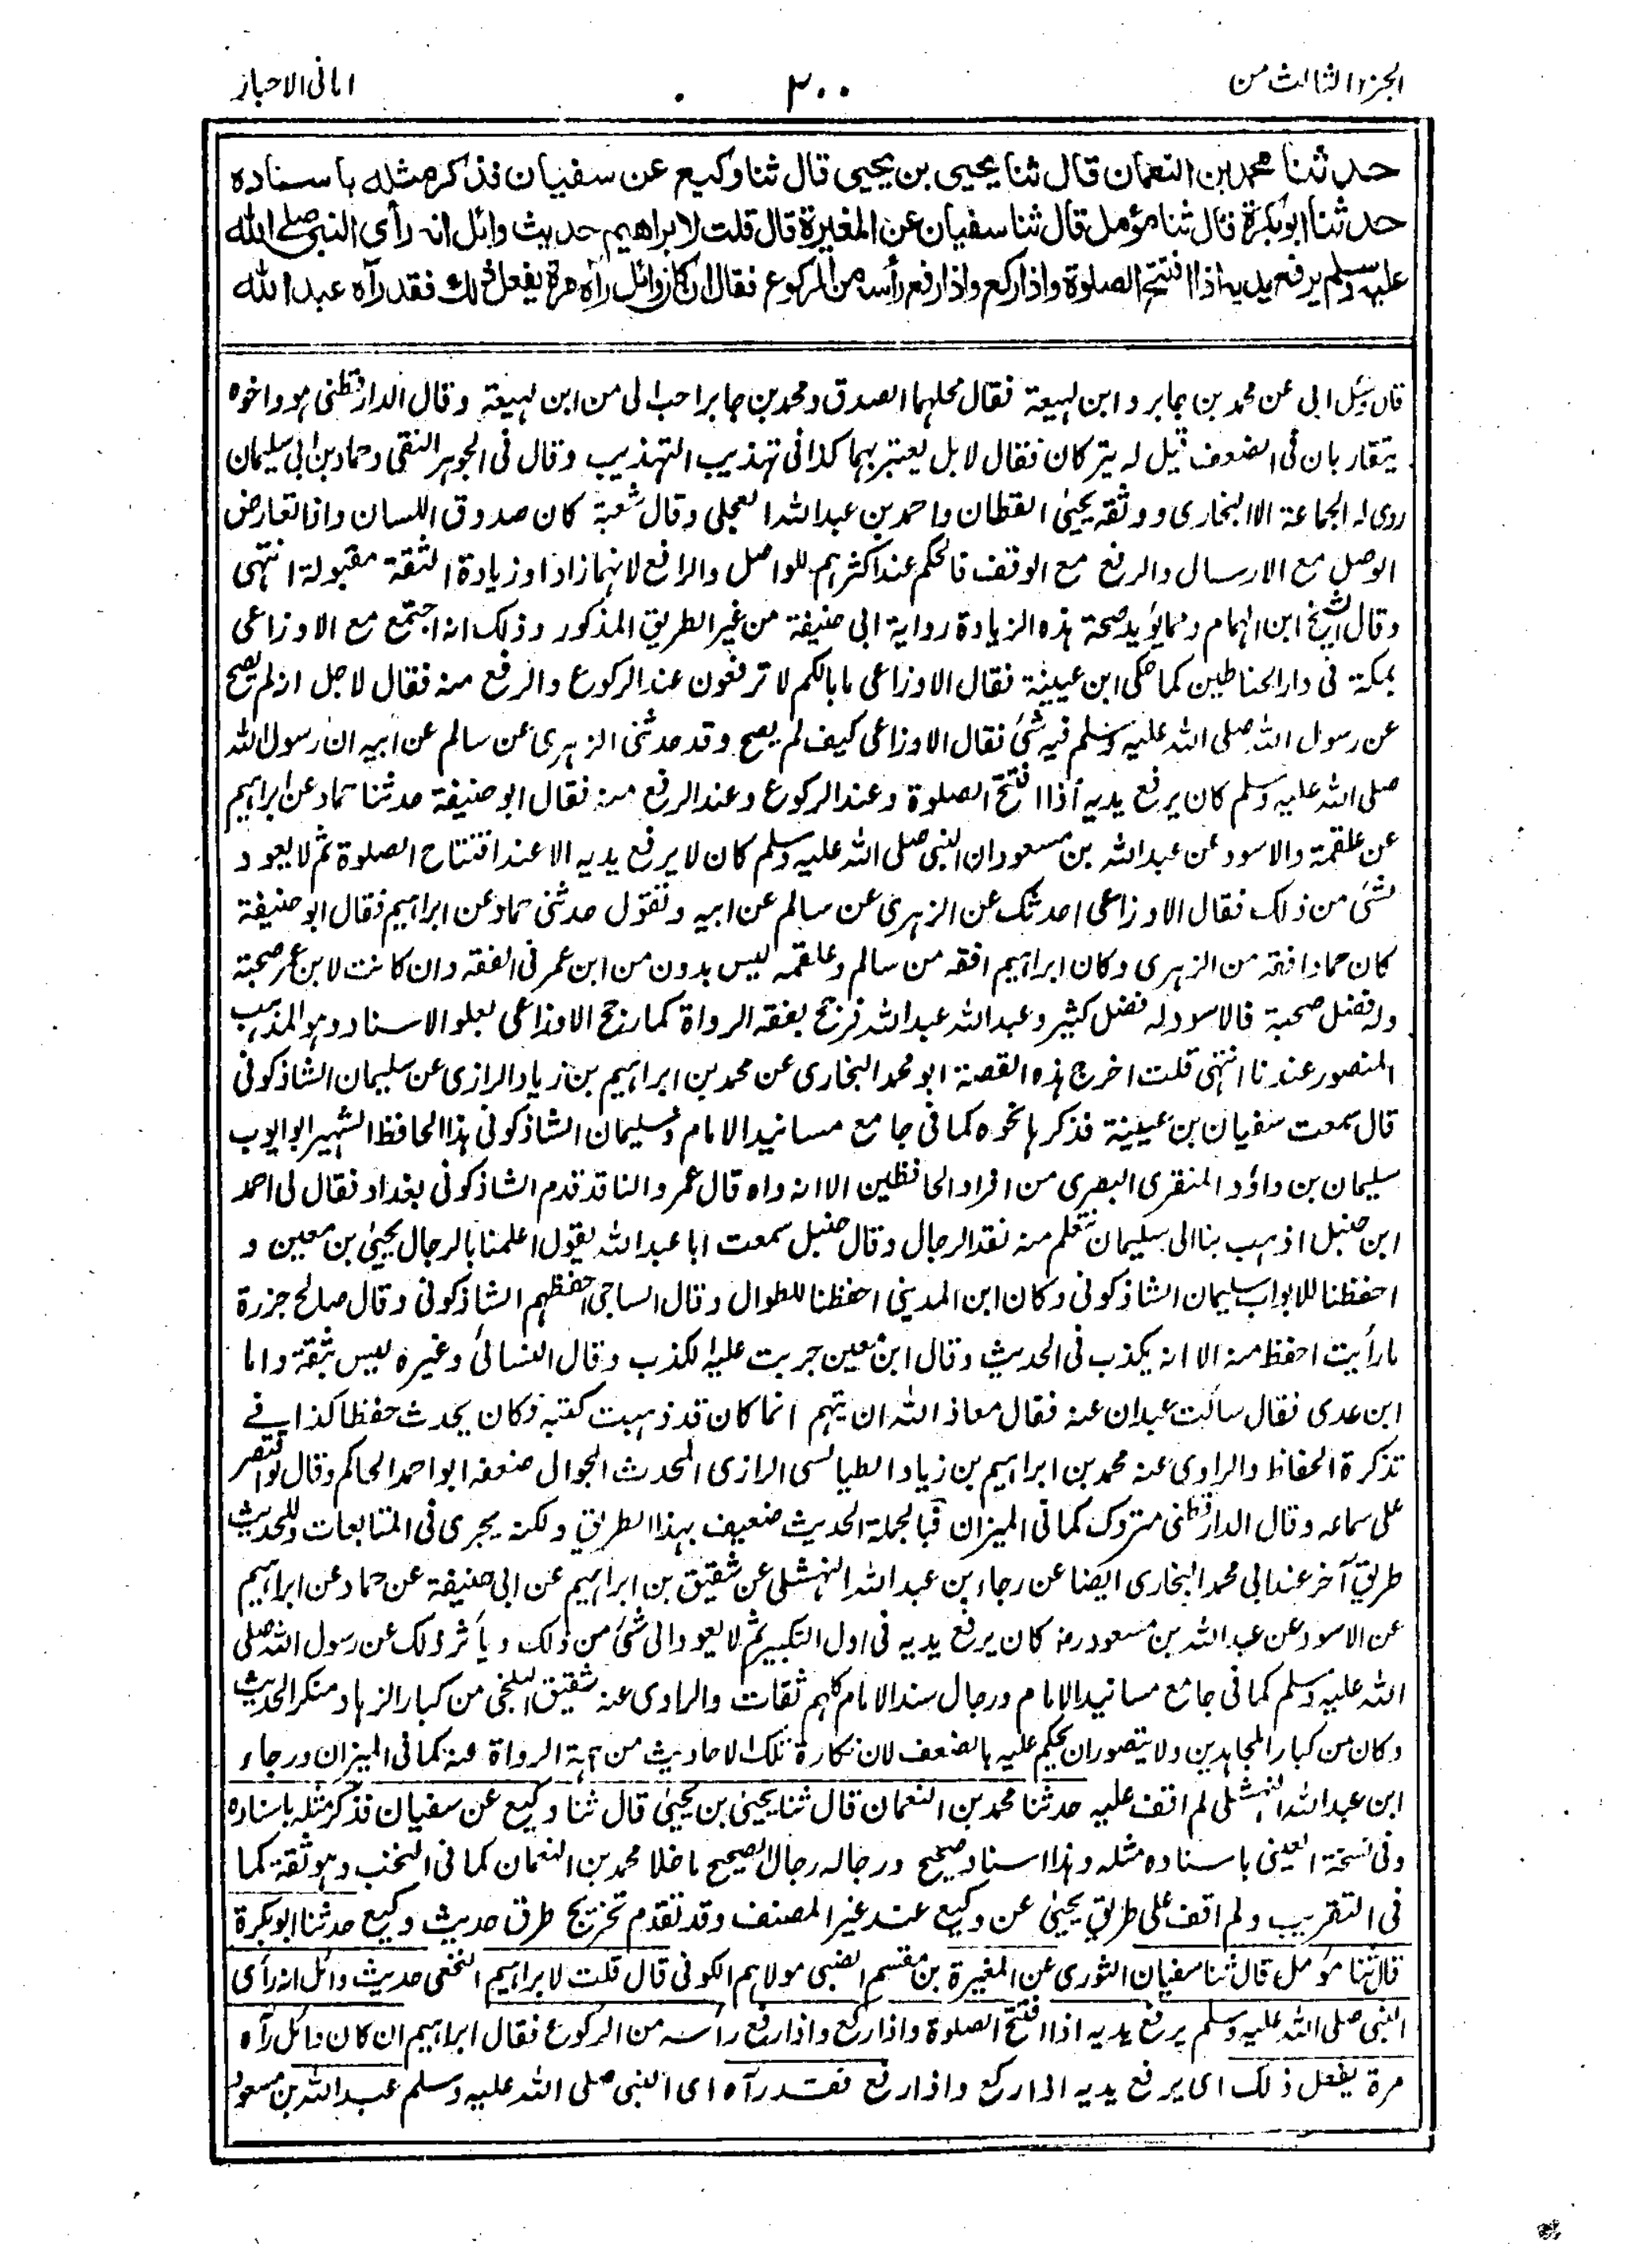 الجزء الثالث من
٢٠٠
امانی الاحبار
حدثنا محمد بن النعمان قال ثنا یحیی بن یحیی قال ثنا وکیع عن سفیان فذکر مثله باسناده
حدثنا ابوبکرة قال ثنا مؤمل قال ثنا سفیان عن المغیرة قال قلت لابراهیم حدیث وائل انه رأی النبی صلی الله
علیه وسلم یرفع یدیه اذا افتتح الصلوة واذا رکع واذا رفع رأسه من الرکوع فقال ان کان وائل رآه مرة یفعل ذلك فقد رآه عبد الله
قال وسئل ابی عن محمد بن جابر و ابن لہیعة فقال محلہما الصدق و محمد بن جابر احب الی من ابن لہیعة وقال الدارقطنی ہو واخوه
یتقاربان فی الضعف قیل لہ یترکان فقال لا بل یعتبر بہما کذا فی تہذیب التہذیب وقال فی الجوہر النقی وحماد بن ابی سلیمان
روی لہ الجماعة الا البخاری ووثقہ یحییٰ القطان واحمد بن عبداللہ العجلی وقال شعبة کان صدوق اللسان واذا تعارض
الوصل مع الارسال والرفع مع الوقف فالحکم عند اکثرہم للواصل والرافع لانہما زادا وزیادة الثقة مقبولة انتہی
وقال الشیخ ابن الہمام ومما یؤید صحة ہذہ الزیادة روایة ابی حنیفة من غیر الطریق المذکور وذلک انہ اجتمع مع الاوزاعی
بمکة فی دار الحناطین کما حکی ابن عیینة فقال الاوزاعی ما بالکم لا ترفعون عند الرکوع والرفع منہ فقال لاجل انہ لم یصح
عن رسول اللہ صلی اللہ علیہ وسلم فیہ شیٔ فقال الاوزاعی کیف لم یصح وقد حدثنی الزہری عن سالم عن ابیہ ان رسول اللہ
صلی اللہ علیہ وسلم کان یرفع یدیہ اذا افتتح الصلوة وعند الرکوع وعند الرفع منہ فقال ابو حنیفة حدثنا حماد عن ابراہیم
عن علقمة والاسود عن عبداللہ بن مسعود ان النبی صلی اللہ علیہ وسلم کان لا یرفع یدیہ الا عند افتتاح الصلوة ثم لا یعود
لشیٔ من ذلک فقال الاوزاعی احدثک عن الزہری عن سالم عن ابیہ وتقول حدثنی حماد عن ابراہیم فقال ابو حنیفة
کان حماد افقہ من الزہری وکان ابراہیم افقہ من سالم وعلقمہ لیس بدون من ابن عمر فی الفقہ وان کانت لابن عمر صحبة
ولہ فضل صحبة فالاسود لہ فضل کثیر وعبداللہ عبداللہ فرجح بفقہ الرواة کما رجح الاوزاعی بعلو الاسناد وہو المذہب
المنصور عندنا انتہی قلت اخرج ہذہ القصة ابو محمد البخاری عن محمد بن ابراہیم بن زیاد الرازی عن سلیمان الشاذکونی
قال سمعت سفیان بن عیینة فذکرہا نحوہ کما فی جامع مسانید الامام وسلیمان الشاذکونی ہذا الحافظ الشہیر ابو ایوب
سلیمان بن داؤد المنقری البصری من افراد الحافظین الا انہ واہ قال عمرو الناقد قدم الشاذکونی بغداد فقال لی احمد
ابن حنبل اذہب بنا الی سلیمان نتعلم منہ نقد الرجال وقال حنبل سمعت ابا عبداللہ یقول اعلمنا بالرجال یحییٰ بن معین و
احفظنا للابواب سلیمان الشاذکونی وکان ابن المدینی احفظنا للطوال وقال الساجی احفظہم الشاذکونی وقال صالح جزرة
ما رأیت احفظ منہ الا انہ یکذب فی الحدیث وقال ابن معین جربت علیہ الکذب وقال النسائی وغیرہ لیس بثقة واما
ابن عدی فقال سألت عبدان عنہ فقال معاذ اللہ ان یتہم انما کان قد ذہبت کتبہ فکان یحدث حفظا کذا فی
تذکرة الحفاظ والراوی عنہ محمد بن ابراہیم بن زیاد الطیالسی الرازی المحدث الجوال ضعفہ ابو احمد الحاکم وقال لو اقتصر
علی سماعہ وقال الدارقطنی متروک کما فی المیزان فبالجملة الحدیث ضعیف بہذا الطریق ولکنہ یجری فی المتابعات وللحدیث
طریق آخر عند ابی محمد البخاری ایضا عن رجاء بن عبداللہ النہشلی عن شقیق بن ابراہیم عن ابی حنیفة عن حماد عن ابراہیم
عن الاسود عن عبداللہ بن مسعود رضہ کان یرفع یدیہ فی اول التکبیر ثم لا یعود الی شیٔ من ذلک ویأثر ذلک عن رسول اللہ صلی
اللہ علیہ وسلم کما فی جامع مسانید الامام ورجال سند الامام کلہم ثقات والراوی عنہ شقیق البلخی من کبار الزہاد منکر الحدیث
وکان من کبار المجاہدین ولا یتصور ان یحکم علیہ بالضعف لان نکارة تلک الاحادیث من جہة الرواة عنہ کما فی المیزان ورجاء
ابن عبداللہ النہشلی لم اقف علیہ حدثنا محمد بن النعمان قال ثنا یحییٰ بن یحییٰ قال ثنا وکیع عن سفیان فذکر مثلہ باسنادہ
وفی نسخة العینی باسنادہ مثلہ وہذا اسناد صحیح ورجالہ رجال الصحیح ما خلا محمد بن النعمان کما فی النخب وہو ثقة کما
فی التقریب ولم اقف علی طریق یحییٰ عن وکیع عند غیر المصنف وقد تقدم تخریج طرق حدیث وکیع حدثنا ابوبکرة
قال ثنا مؤمل قال ثنا سفیان الثوری عن المغیرة بن مقسم الضبی مولاہم الکوفی قال قلت لابراہیم النخعی حدیث وائل انہ رأی
النبی صلی اللہ علیہ وسلم یرفع یدیہ اذا افتتح الصلوة واذا رکع واذا رفع رأسہ من الرکوع فقال ابراہیم ان کان وائل رآہ
مرة یفعل ذلک ای یرفع یدیہ اذا رکع واذا رفع فقد رآہ ای النبی صلی اللہ علیہ وسلم عبداللہ بن مسعود